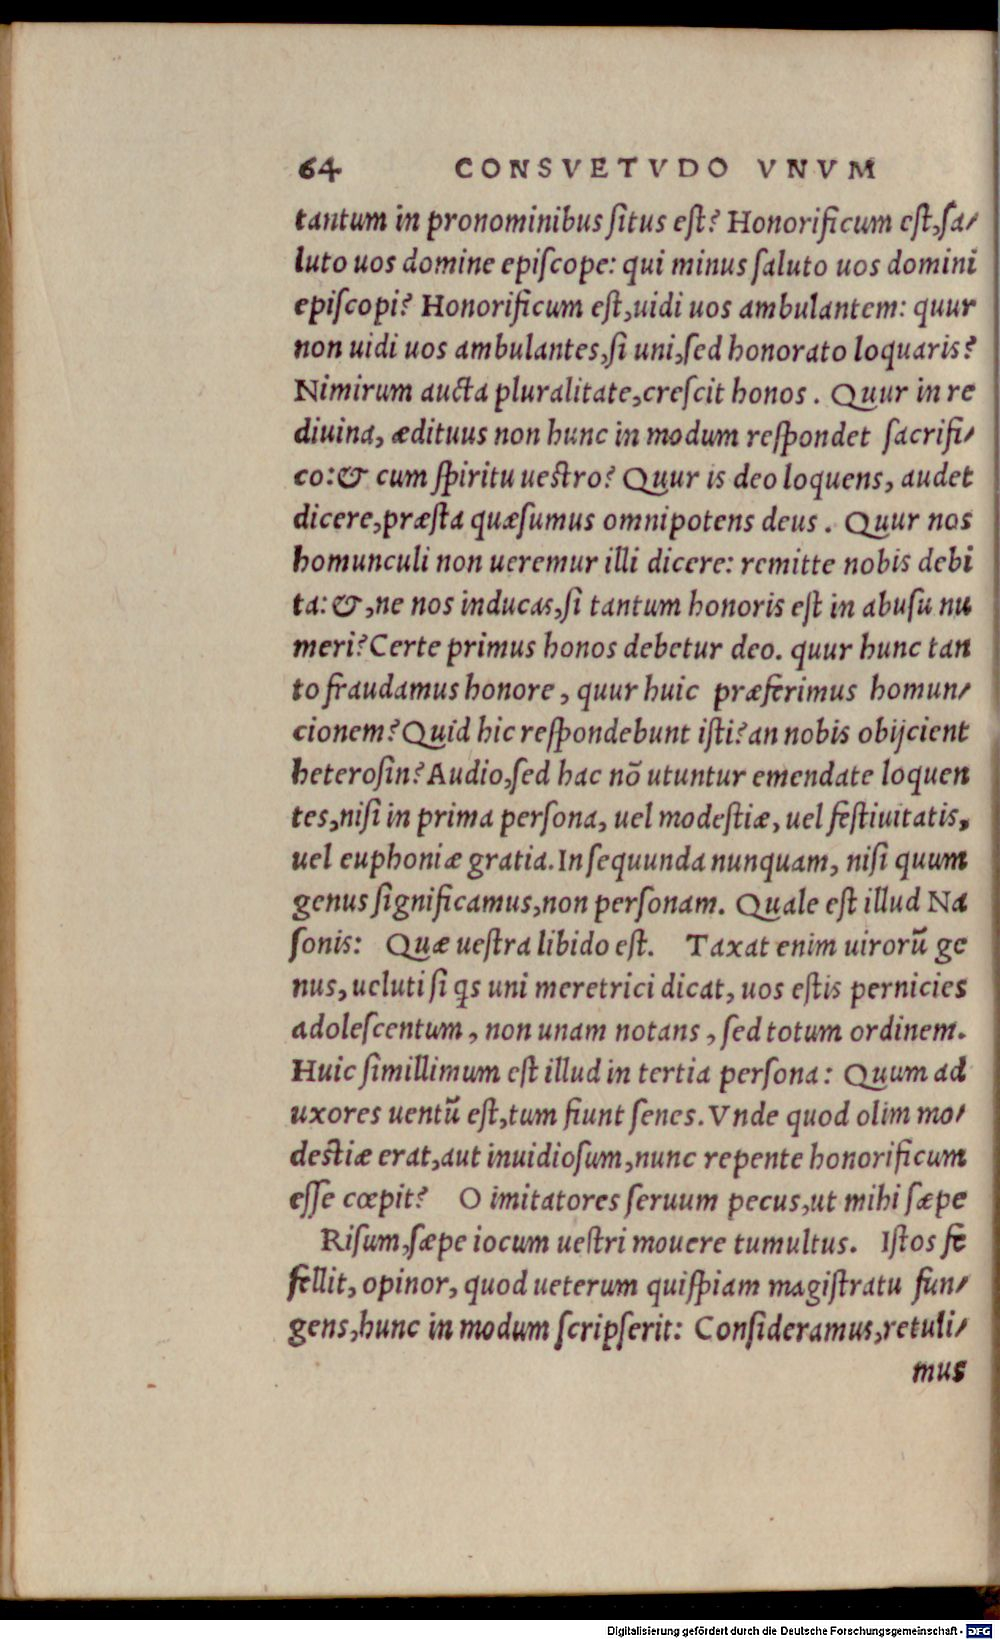 64 CONSVETVDO VNVM
tantum in pronominibus ſitus eſt? Honorificum eſt, ſa/
luto uos domine epiſcope: qui minus ſaluto uos domini
epiſcopi? Honorificum eſt, uidi uos ambulantem: quur
non uidi uos ambulantes, ſi uni, ſed honorato loquaris?
Nimirum aucta pluralitate, creſcit honos. Quur in re
diuina, ædituus non hunc in modum reſpondet ſacrifi/
co: & cum ſpiritu uestro? Quur is deo loquens, audet
dicere, præſta quæſumus omnipotens deus. Quur nos
homunculi non ueremur illi dicere: remitte nobis debi
ta: &, ne nos inducas, ſi tantum honoris eſt in abuſu nu
meri? Certe primus honos debetur deo. quur hunc tan
to fraudamus honore, quur huic præferimus homun/
cionem? Quid hic reſpondebunt iſti? an nobis obijcient
heteroſin? Audio, ſed hac nõ utuntur emendate loquen
tes, niſi in prima perſona, uel modeſtiæ, uel feſtiuitatis,
uel euphoniæ gratia. In ſequunda nunquam, niſi quum
genus ſignificamus, non perſonam. Quale eſt illud Na
ſonis: Quæ ueſtra libido eſt. Taxat enim uirorũ ge
nus, ueluti ſi qs uni meretrici dicat, uos eſtis pernicies
adoleſcentum, non unam notans, ſed totum ordinem.
Huic ſimillimum eſt illud in tertia perſona: Quum ad
uxores uentũ eſt, tum fiunt ſenes. Vnde quod olim mo/
destiæ erat, aut inuidioſum, nunc repente honorificum
eſſe cœpit? O imitatores ſeruum pecus, ut mihi ſæpe
Riſum, ſæpe iocum ueſtri mouere tumultus. Iſtos fe
fellit, opinor, quod ueterum quiſpiam magiſtratu fun/
gens, hunc in modum ſcripſerit: Conſideramus, retuli/
mus
Digitalisierung gefördert durch die Deutsche Forschungsgemeinschaft - DFG